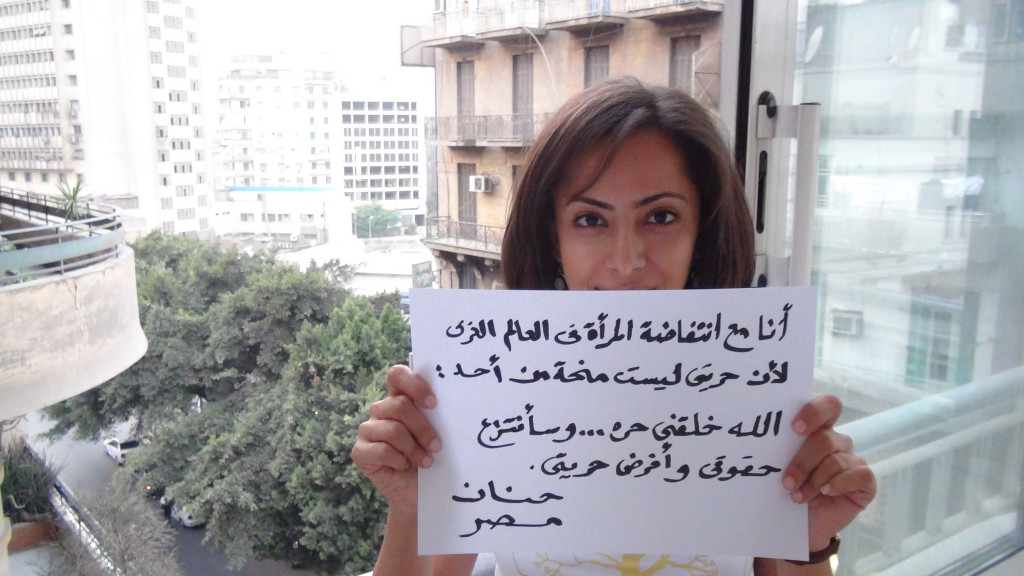 أنا مع انتفاضة المرأة فى العالم العربى
لأن حريتى ليست منحة من أحد :
الله خلقني حره ... وسأنتزع
حقوقى وأفرض حريتى .
حنان
مصر